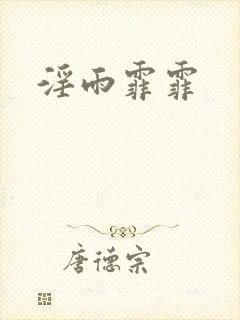 淫雨霏霏
唐德宗